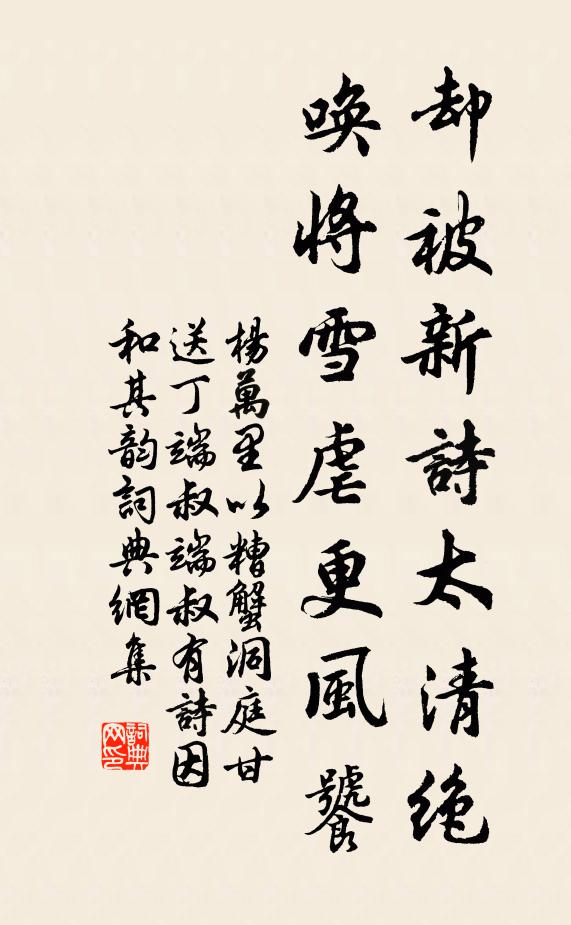 却被新詩太清絶
喚將雪虐更風饕
楊萬里以糟蟹洞庭甘
送丁端叔端叔有詩因
和其韵詞典網集
詞典網印